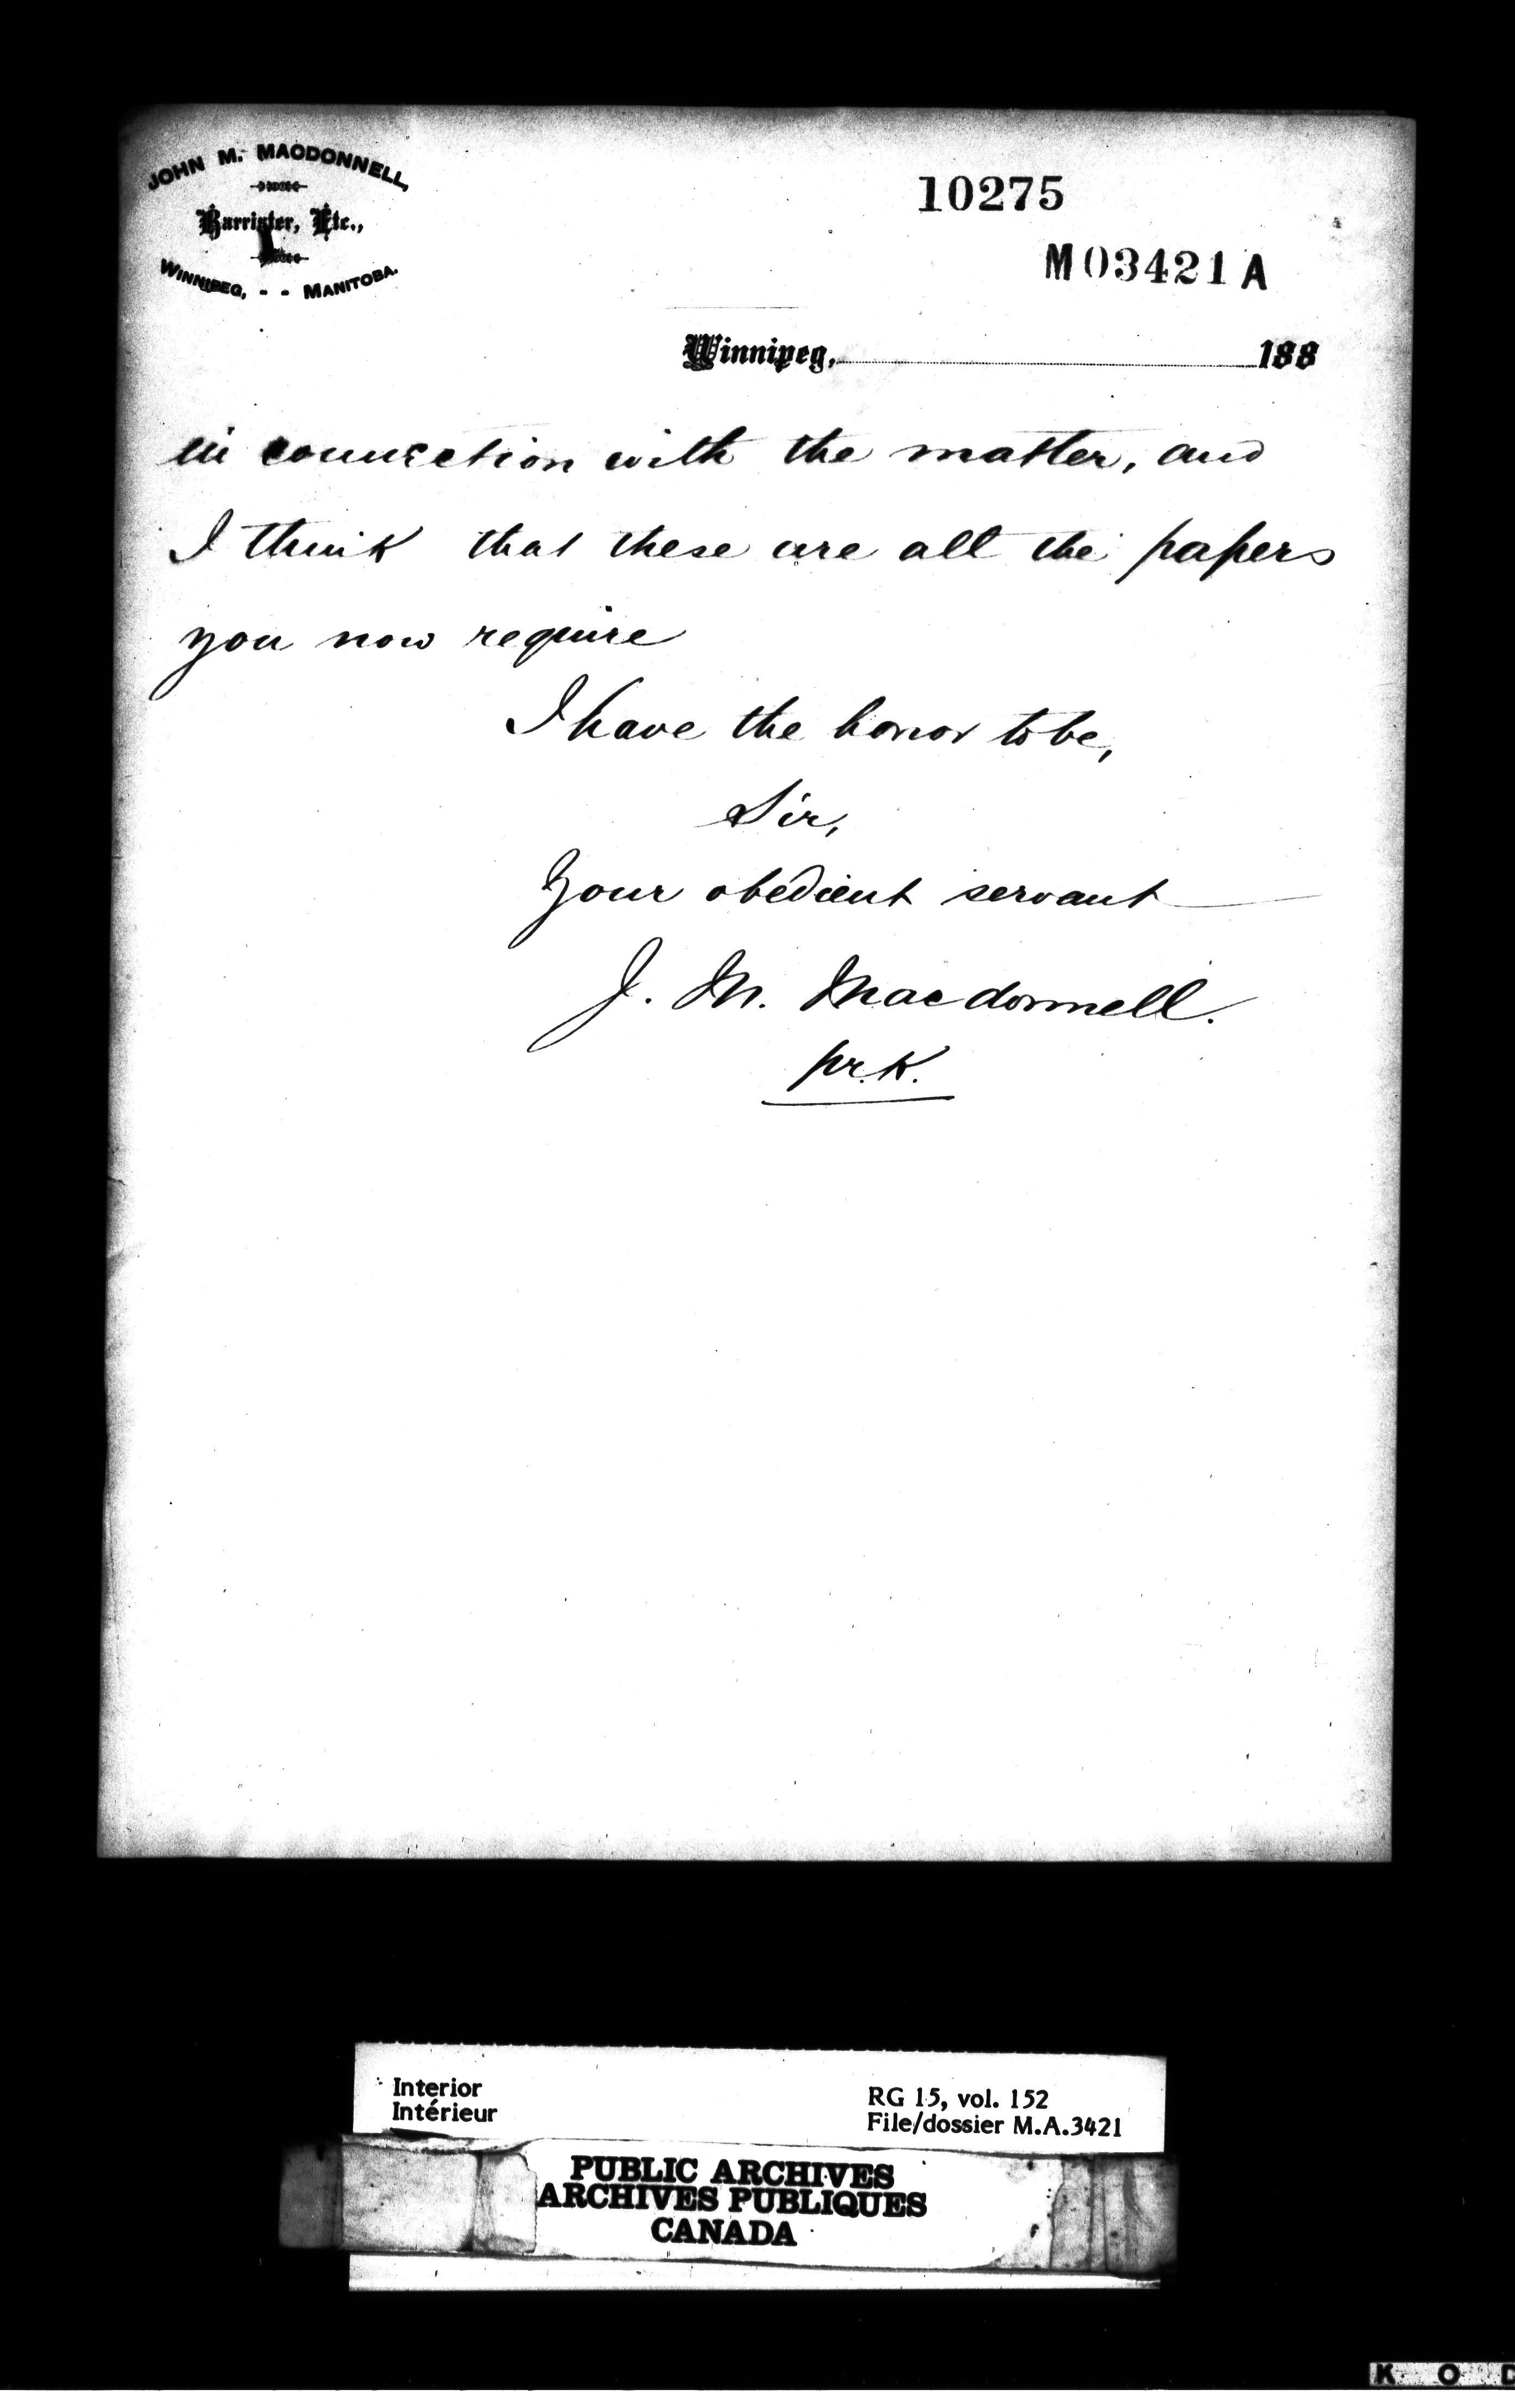 JOHN M. MACDONNELL,
Barrister, Etc.,
WINNIPEG, - - MANITOBA.
10275
M03421A
Winnipeg, 188
in connection with the matter, and
I think that these are all the papers
you now require
I have the honor to be,
Sir,
Your obedient servant
J. M. Macdonnell.
pr. K.
Interior
Intérieur
RG 15, vol. 152
File/dossier M.A.3421
PUBLIC ARCHIVES
ARCHIVES PUBLIQUES
CANADA
K O D